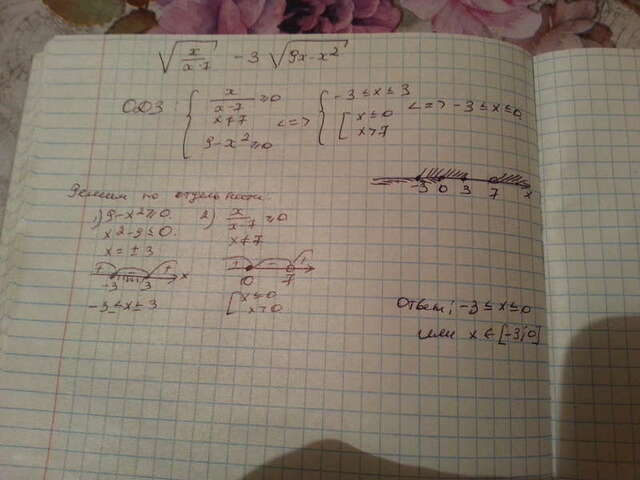 √(x/(x-7)) - 3 √(9x-x²)
ОДЗ: { x/(x-7) ≥ 0
x ≠ 7
9-x² ≥ 0
<=> { -3 ≤ x ≤ 3
[ x ≤ 0
x > 7
<=> -3 ≤ x ≤ 0
-3 0 3 7 x
Решим по отдельности:
1) 9-x² ≥ 0
x²-9 ≤ 0
x = ± 3
+ - + x
-3 3
-3 ≤ x ≤ 3
2) x/(x-7) ≥ 0
x ≠ 7
+ - +
0 7
[ x ≤ 0
x > 0
Ответ: -3 ≤ x ≤ 0
или x ∈ [-3;0]